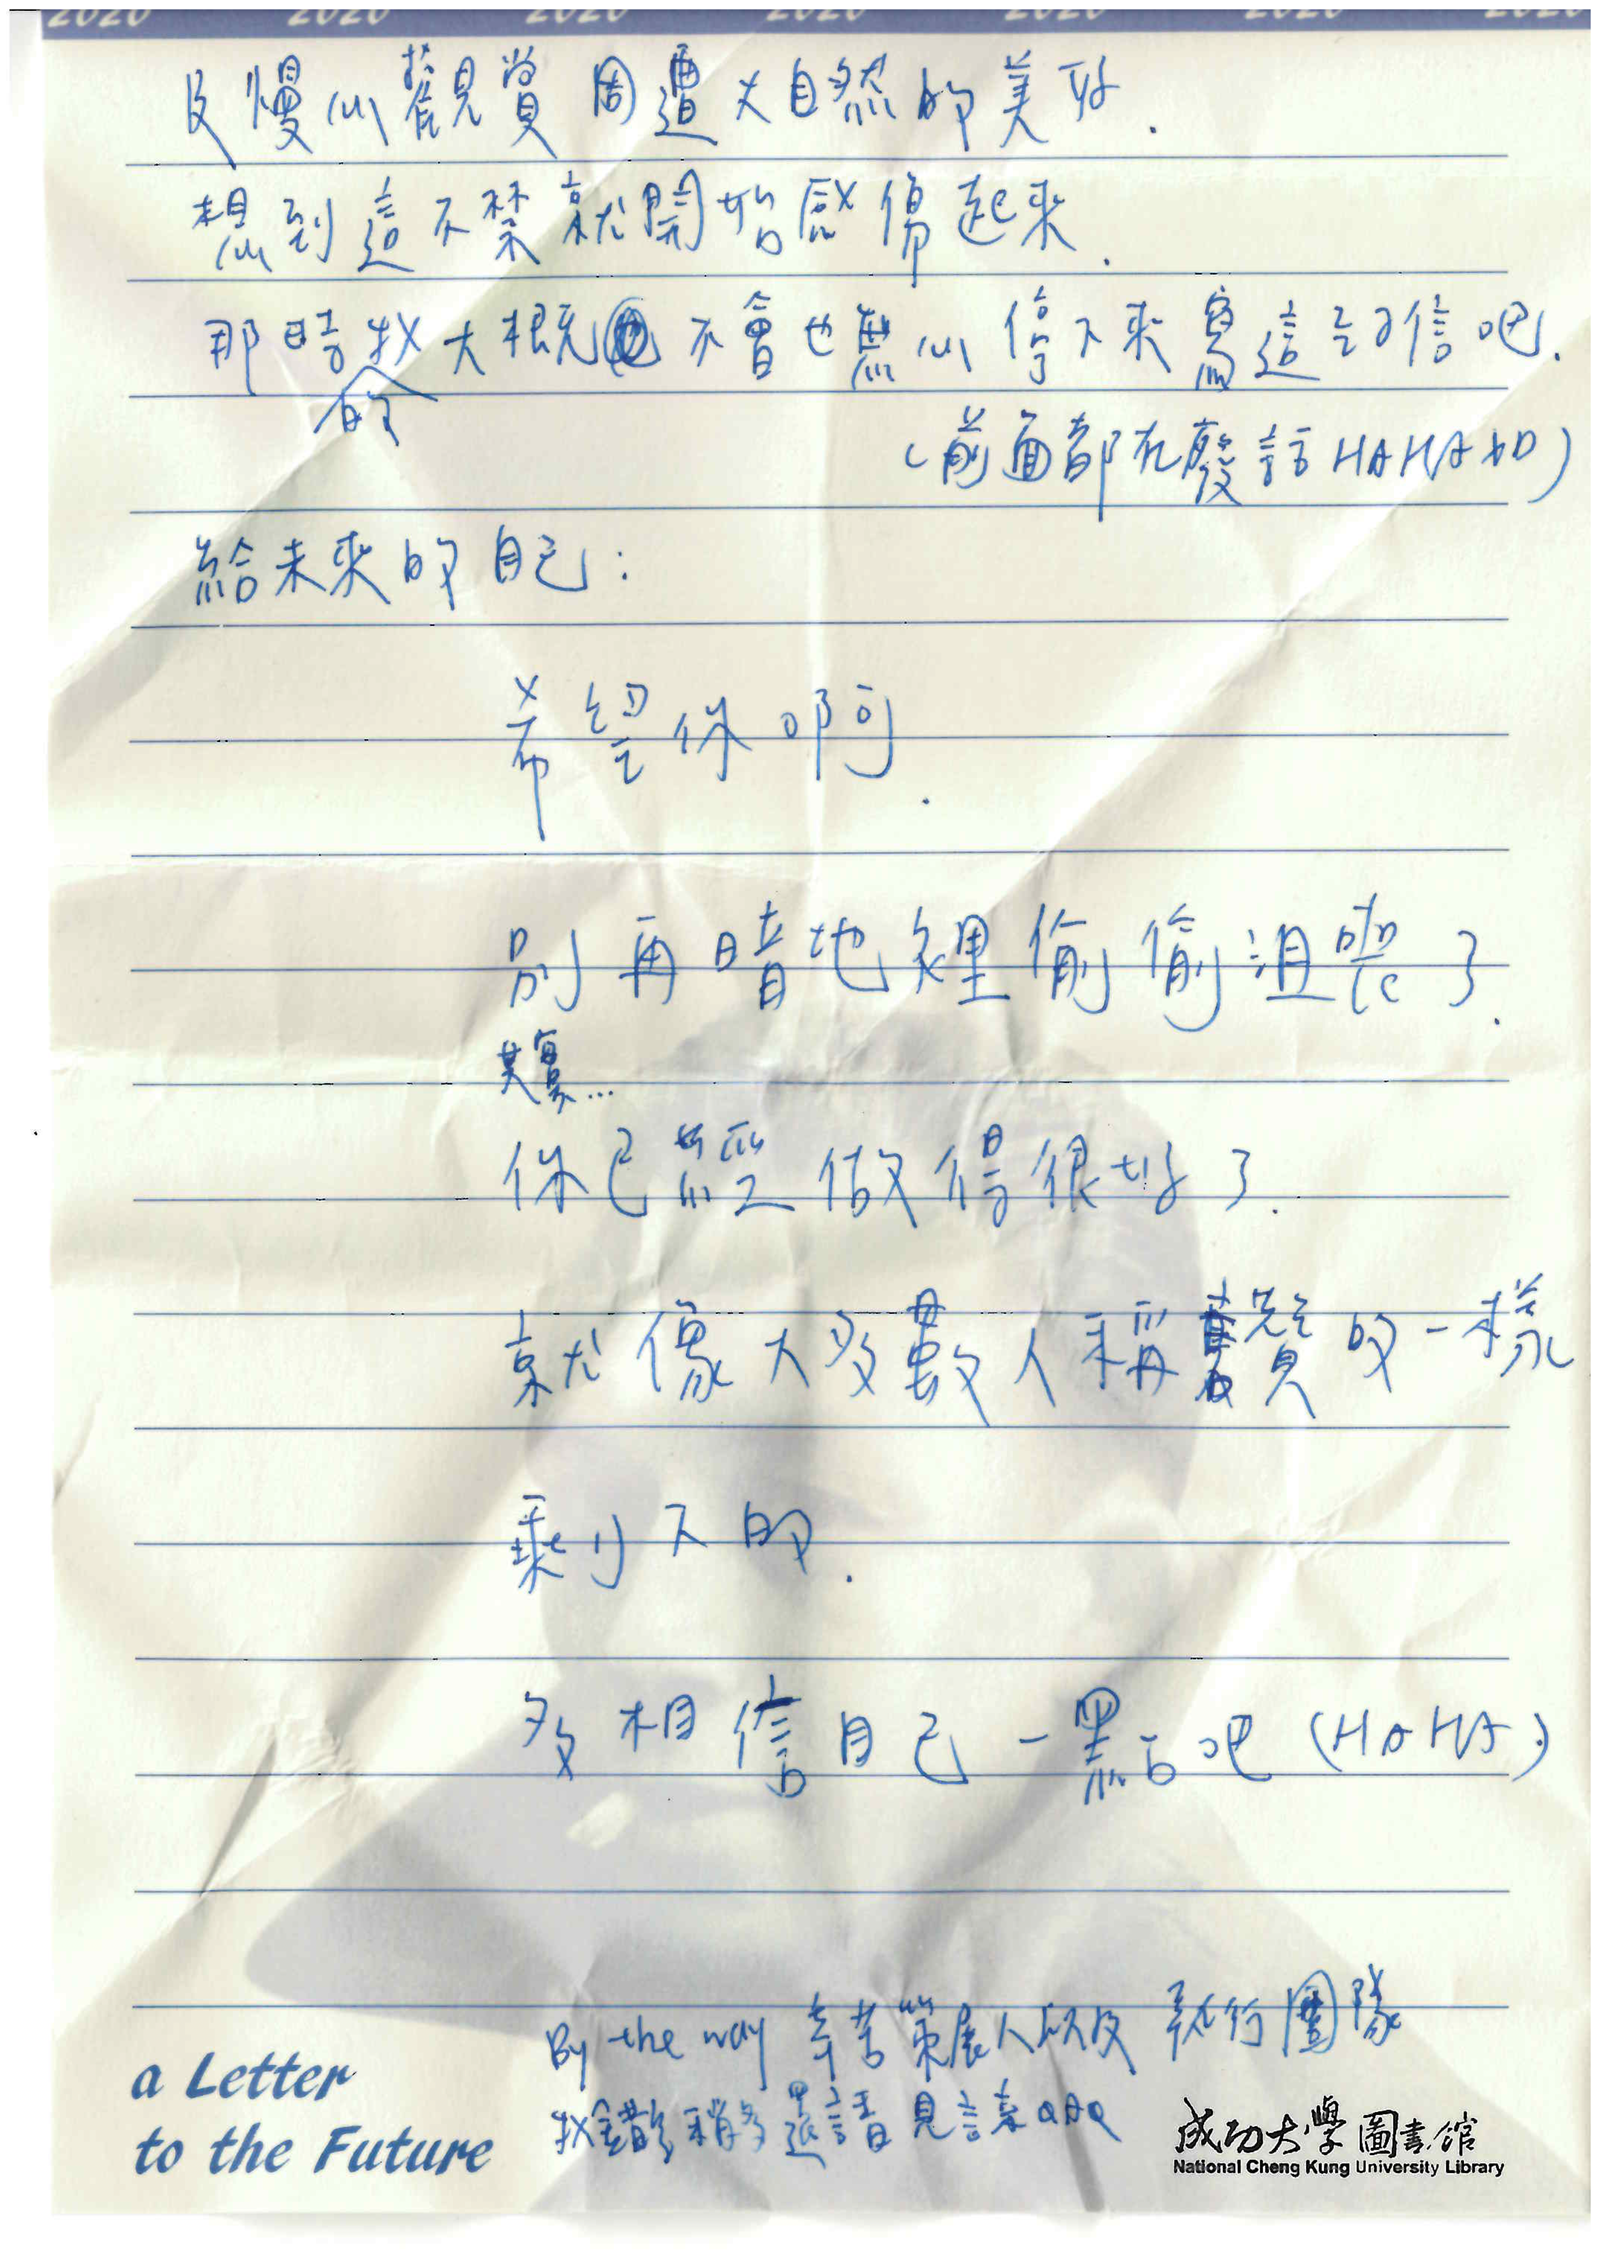 2020 2020 2020 2020 2020 2020 2020
及慢心觀賞周遭大自然的美好.
想到這不禁就開始感傷起來.
那時的我大概不會也無心停下來寫這封信吧.
(前面都在廢話HAHA XD)
給未來的自己:
希望你啊.
別再暗地裡偷偷沮喪了.
其實...
你已經做得很好了.
就像大多數人稱讚的一樣
剩下的.
多相信自己一點吧(HAHA.)
By the way 辛苦策展人以及執行團隊
我錯字稍多還請見諒QAQ
a Letter
to the Future
成功大學圖書館
National Cheng Kung University Library